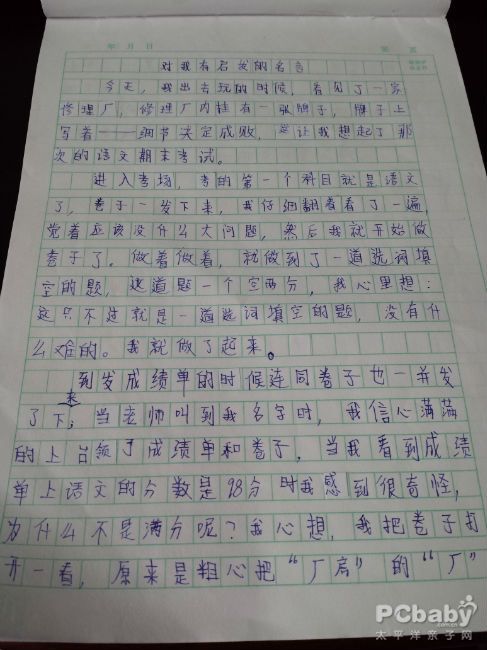 年 月 日
对我有启发的名言
今天，我出去玩的时候，看见了一家
修理厂，修理厂内挂有一张牌子，牌子上
写着——细节决定成败，这让我想起了那
次的语文期末考试。
进入考场，考的第一个科目就是语文
了，卷子一发下来，我仔细翻看看了一遍，
觉着应该没什么大问题，然后我就开始做
卷子了。做着做着，就做到了一道选词填
空的题，这道题一个空两分，我心里想：
这只不过就是一道选词填空的题，没有什
么难的。我就做了起来。
到发成绩单的时候连同卷子也一并发
了下来，当老师叫到我名字时，我信心满满
的上台领了成绩单和卷子，当我看到成绩
单上语文的分数是98分时我感到很奇怪，
为什么不是满分呢？我心想，我把卷子打
开一看，原来是粗心把“厂房”的“厂”
PCbaby
.com.cn
太平洋亲子网